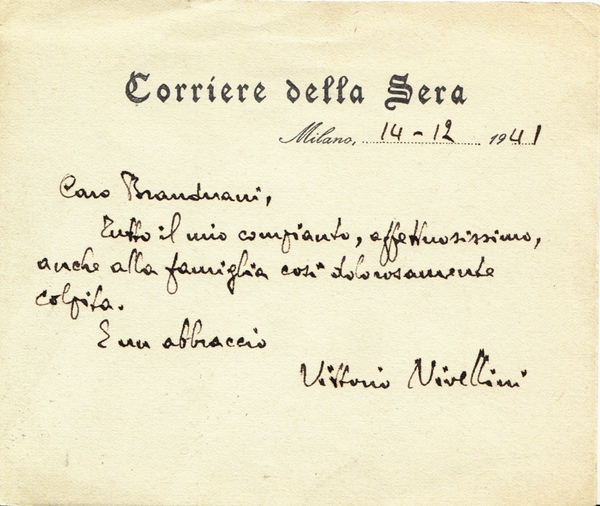 Corriere della Sera
Milano, 14-12 1941
Caro Branduani,
Tutto il mio compianto, affettuosissimo,
anche alla famiglia così dolorosamente
colpita.
E un abbraccio
Vittorio Nivellini